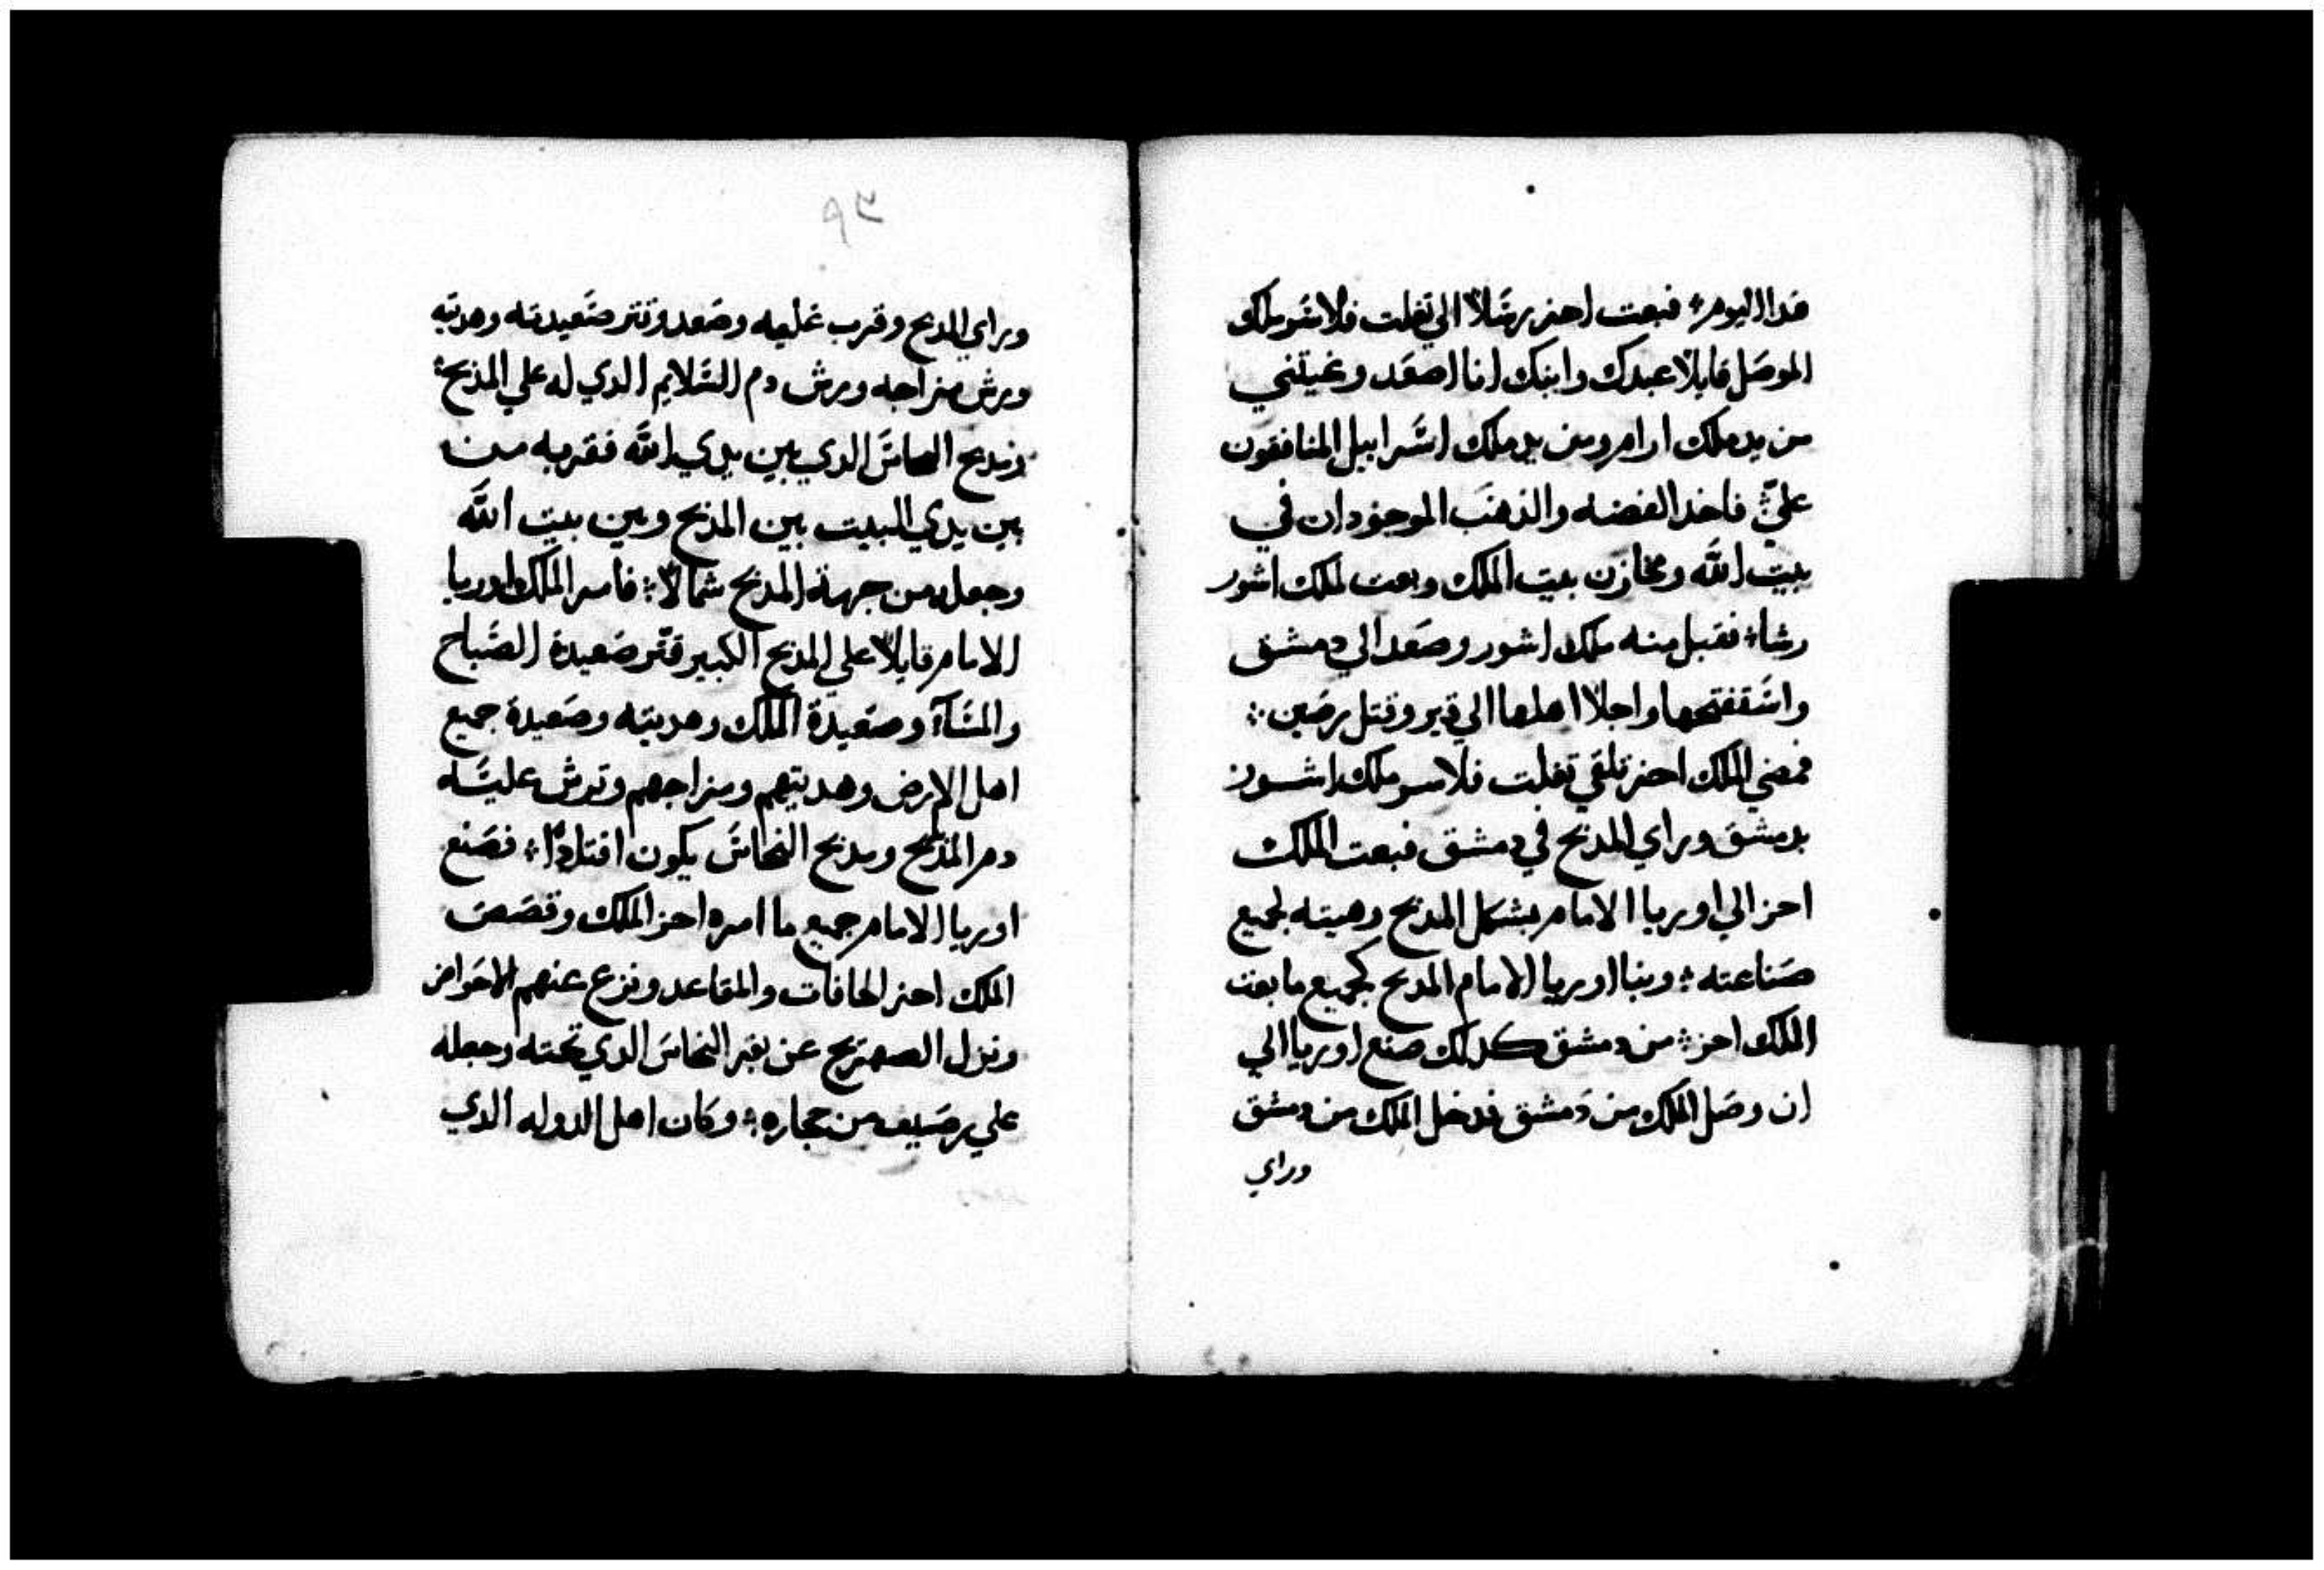 هدا اليوم ؞ فبعت احز رسلاً الي تغلت فلاسر ملك
الموصل قايلاً عبدك وابنك انا اصعد وغيتني
من يد ملك ارام ومن يد ملك اسراييل المنافقون
عليّ ؞ فاخد الفضه والذهب الموجودان في
بيت الله ومخازن بيت الملك وبعت لملك اشور
رشا ؞ فقبل منه ملك اشور وصعد الي دمشق
واستفتحها واجلا اهلها الي قير وقتل رصين ؞
فمضي الملك احز تلقي تغلت فلاسر ملك اشور
بدمشق وراي المدبح في دمشق فبعت الملك
احز الي اوريا الامام بشكل المدبح وهيته لجميع
صناعته ؞ وبنا اوريا الامام المدبح كجميع ما بعت
الملك احز ؞ من دمشق كدلك صنع اوريا الي
ان وصل الملك من دمشق فدخل الملك من دمشق
وراي
٩٣
وراي المدبح وقرب عليه وصعد وقتر صعيدته وهديته
ورش مزاجه ورش دم السلايم الدي له علي المذبح ؞
ومدبح النحاس الدي بين يدي الله فقربه من
بين يدي البيت بين المذبح وبين بيت الله
وجعله من جهة المذبح شمالاً ؞ فامر الملك اوريا
الامام قايلاً علي المذبح الكبير قتّر صعيدة الصباح
والمسآ وصعيدة الملك وهديته وصعيدة جميع
اهل الارض وهديتهم ومزاجهم وترش عليه
دم المذبح ومدبح النحاس يكون افتقادًا ؞ فصنع
اوريا الامام جميع ما امره احز الملك وقصص
الملك احز الحافات والمقاعد ونزع عنهم الاحواض
ونزل الصهريج عن بقر النحاس الدي تحته وجعله
علي رصيف من حجاره ؞ وكان اهل الدوله الدي